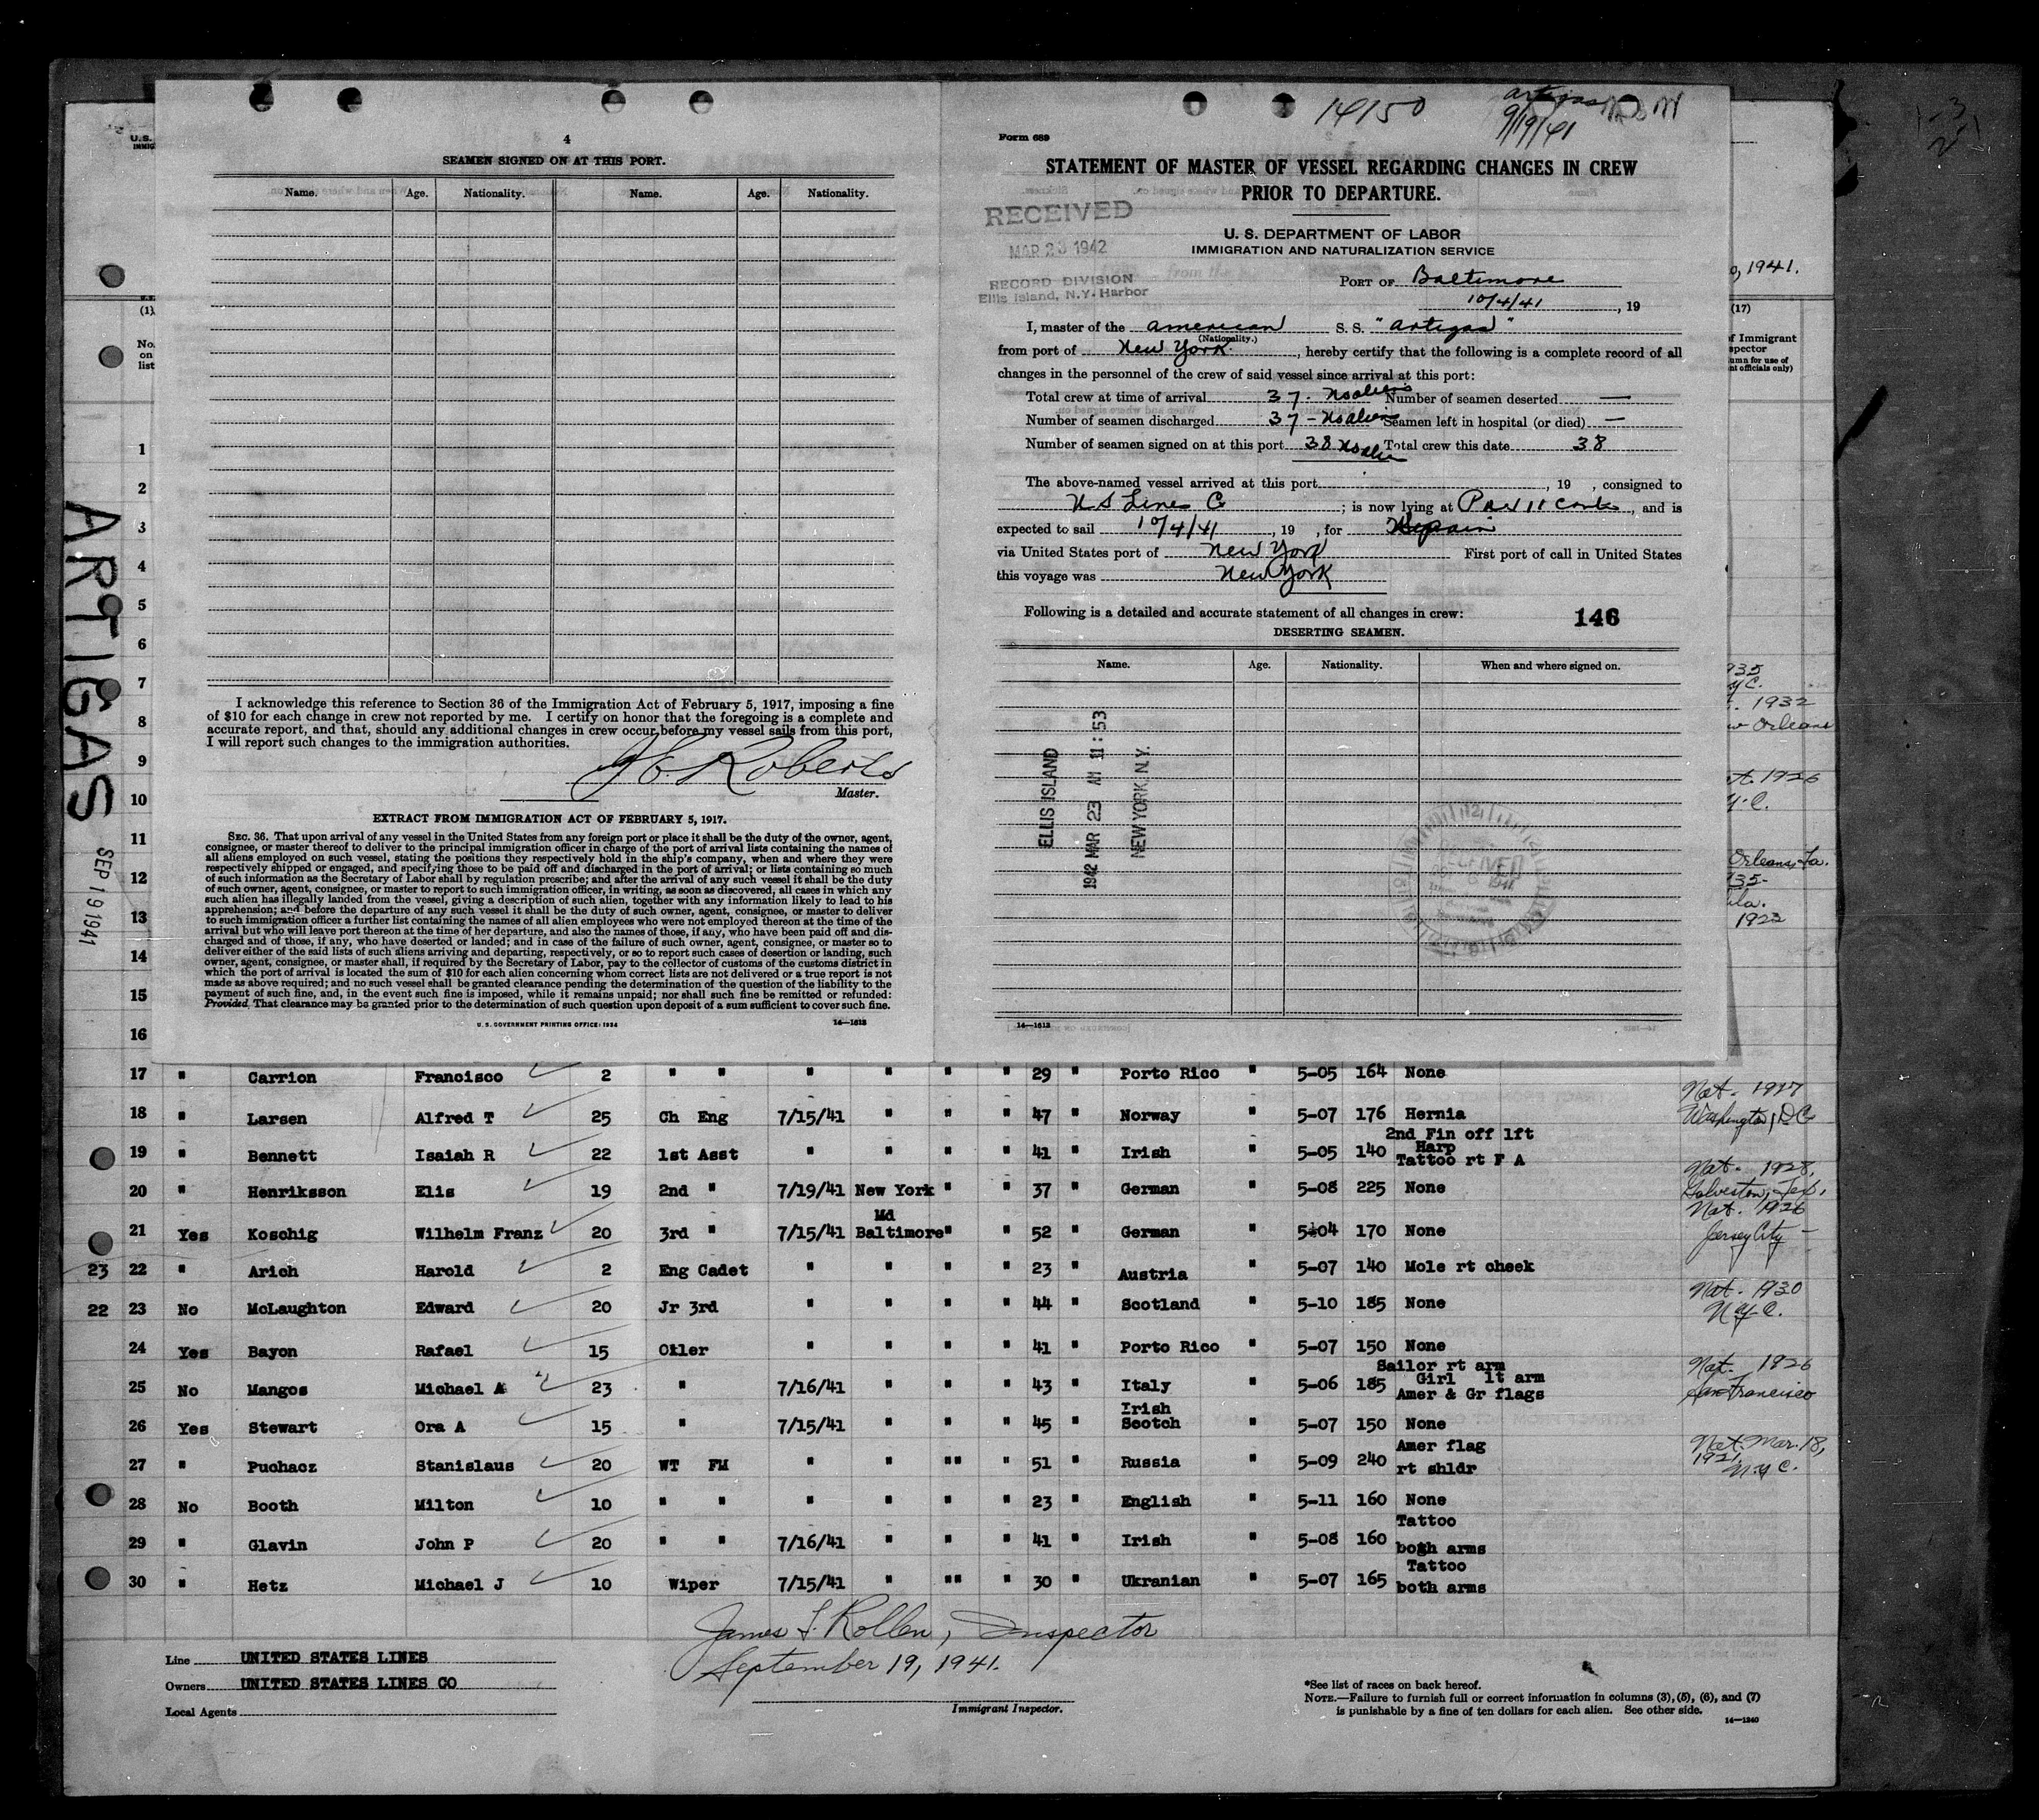 4
SEAMEN SIGNED ON AT THIS PORT.
Name. Age. Nationality. Name. Age. Nationality.
I acknowledge this reference to Section 36 of the Immigration Act of February 5, 1917, imposing a fine
of $10 for each change in crew not reported by me. I certify on honor that the foregoing is a complete and
accurate report, and that, should any additional changes in crew occur before my vessel sails from this port,
I will report such changes to the immigration authorities.
Roberts
Master.
EXTRACT FROM IMMIGRATION ACT OF FEBRUARY 5, 1917.
SEC. 36. That upon arrival of any vessel in the United States from any foreign port or place it shall be the duty of the owner, agent,
consignee, or master thereof to deliver to the principal immigration officer in charge of the port of arrival lists containing the names of
all aliens employed on such vessel, stating the positions they respectively hold in the ship's company, when and where they were
respectively shipped or engaged, and specifying those to be paid off and discharged in the port of arrival; or lists containing so much
of such information as the Secretary of Labor shall by regulation prescribe; and after the arrival of any such vessel it shall be the duty
of such owner, agent, consignee, or master to report to such immigration officer, in writing, as soon as discovered, all cases in which any
such alien has illegally landed from the vessel, giving a description of such alien, together with any information likely to lead to his
apprehension; and before the departure of any such vessel it shall be the duty of such owner, agent, consignee, or master to deliver
to such immigration officer a further list containing the names of all alien employees who were not employed thereon at the time of the
arrival but who will leave port thereon at the time of her departure, and also the names of those, if any, who have been paid off and dis-
charged and of those, if any, who have deserted or landed; and in case of the failure of such owner, agent, consignee, or master so to
deliver either of the said lists of such aliens arriving and departing, respectively, or so to report such cases of desertion or landing, such
owner, agent, consignee, or master shall, if required by the Secretary of Labor, pay to the collector of customs of the customs district in
which the port of arrival is located the sum of $10 for each alien concerning whom correct lists are not delivered or a true report is not
made as above required; and no such vessel shall be granted clearance pending the determination of the question of the liability to the
payment of such fine, and, in the event such fine is imposed, while it remains unpaid; nor shall such fine be remitted or refunded:
Provided, That clearance may be granted prior to the determination of such question upon deposit of a sum sufficient to cover such fine.
U. S. GOVERNMENT PRINTING OFFICE: 1934 14—1613
14150
Artigas
9/19/41
Form 689
STATEMENT OF MASTER OF VESSEL REGARDING CHANGES IN CREW
PRIOR TO DEPARTURE.
RECEIVED
MAR 23 1942
RECORD DIVISION
Ellis Island, N.Y. Harbor
U. S. DEPARTMENT OF LABOR
IMMIGRATION AND NATURALIZATION SERVICE
PORT OF Baltimore
10/4/41, 19
I, master of the American S. S. "Artigas"
(Nationality.)
from port of New York, hereby certify that the following is a complete record of all
changes in the personnel of the crew of said vessel since arrival at this port:
Total crew at time of arrival 37 - No aliens Number of seamen deserted —
Number of seamen discharged 37 - No aliens Seamen left in hospital (or died) —
Number of seamen signed on at this port 38 No alien Total crew this date 38
The above-named vessel arrived at this port , 19 , consigned to
U S Lines Co ; is now lying at Pier 11, and is
expected to sail 10/4/41, 19 , for
via United States port of New York First port of call in United States
this voyage was New York
Following is a detailed and accurate statement of all changes in crew: 146
DESERTING SEAMEN.
Name. Age. Nationality. When and where signed on.
ELLIS ISLAND
1942 MAR 23 AM 11:53
NEW YORK, N.Y.
RECEIVED
14—1613
U.S.
(1)
No.
on
list
1
2
3
4
5
6
7
8
9
10
11
12
13
14
15
16
ARTIGAS
SEP 19 1941
, 1941.
(17)
of Immigrant
1932
1926
Orleans, La.
1922
17 " Carrion Francisco 2 " " " " " " 29 " Porto Rico " 5-05 164 None
18 " Larsen Alfred T 25 Ch Eng 7/15/41 " " " 47 " Norway " 5-07 176 Hernia Nat. 1917 Washington, DC
19 " Bennett Isaiah R 22 1st Asst " " " " 41 " Irish " 5-05 140 2nd Fin off lft Harp Tattoo rt F A
20 " Henriksson Elis 19 2nd " 7/19/41 New York " " 37 " German " 5-08 225 None Nat. 1928, Galveston, Tex.
21 Yes Koschig Wilhelm Franz 20 3rd " 7/15/41 Md Baltimore " " 52 " German " 5-04 170 None Nat. 1926 Jersey City -
23 22 " Arich Harold 2 Eng Cadet " " " " 23 " Austria " 5-07 140 Mole rt cheek
22 23 No McLaughton Edward 20 Jr 3rd " " " " 44 " Scotland " 5-10 185 None Nat. 1930 N.Y.C.
24 Yes Bayon Rafael 15 Oiler " " " " 41 " Porto Rico " 5-07 150 None
25 No Mangos Michael A 23 " 7/16/41 " " " 43 " Italy " 5-06 185 Sailor rt arm Girl lt arm Amer & Gr flags Nat. 1926 San Francisco
26 Yes Stewart Ora A 15 " 7/15/41 " " " 45 " Irish Scotch " 5-07 150 None
27 " Puchacz Stanislaus 20 WT FM " " "" " 51 " Russia " 5-09 240 Amer flag rt shldr Nat. Mar. 18, 1921, N.Y.C.
28 No Booth Milton 10 " " " " " " 23 " English " 5-11 160 None
29 " Glavin John P 20 " " 7/16/41 " " " 41 " Irish " 5-08 160 Tattoo both arms
30 " Hetz Michael J 10 Wiper 7/15/41 " "" " 30 " Ukranian " 5-07 165 Tattoo both arms
James F. Rollen, Inspector
September 19, 1941.
Immigrant Inspector.
Line UNITED STATES LINES
Owners UNITED STATES LINES CO
Local Agents
*See list of races on back hereof.
NOTE.—Failure to furnish full or correct information in columns (3), (5), (6), and (7)
is punishable by a fine of ten dollars for each alien. See other side.
14—1240